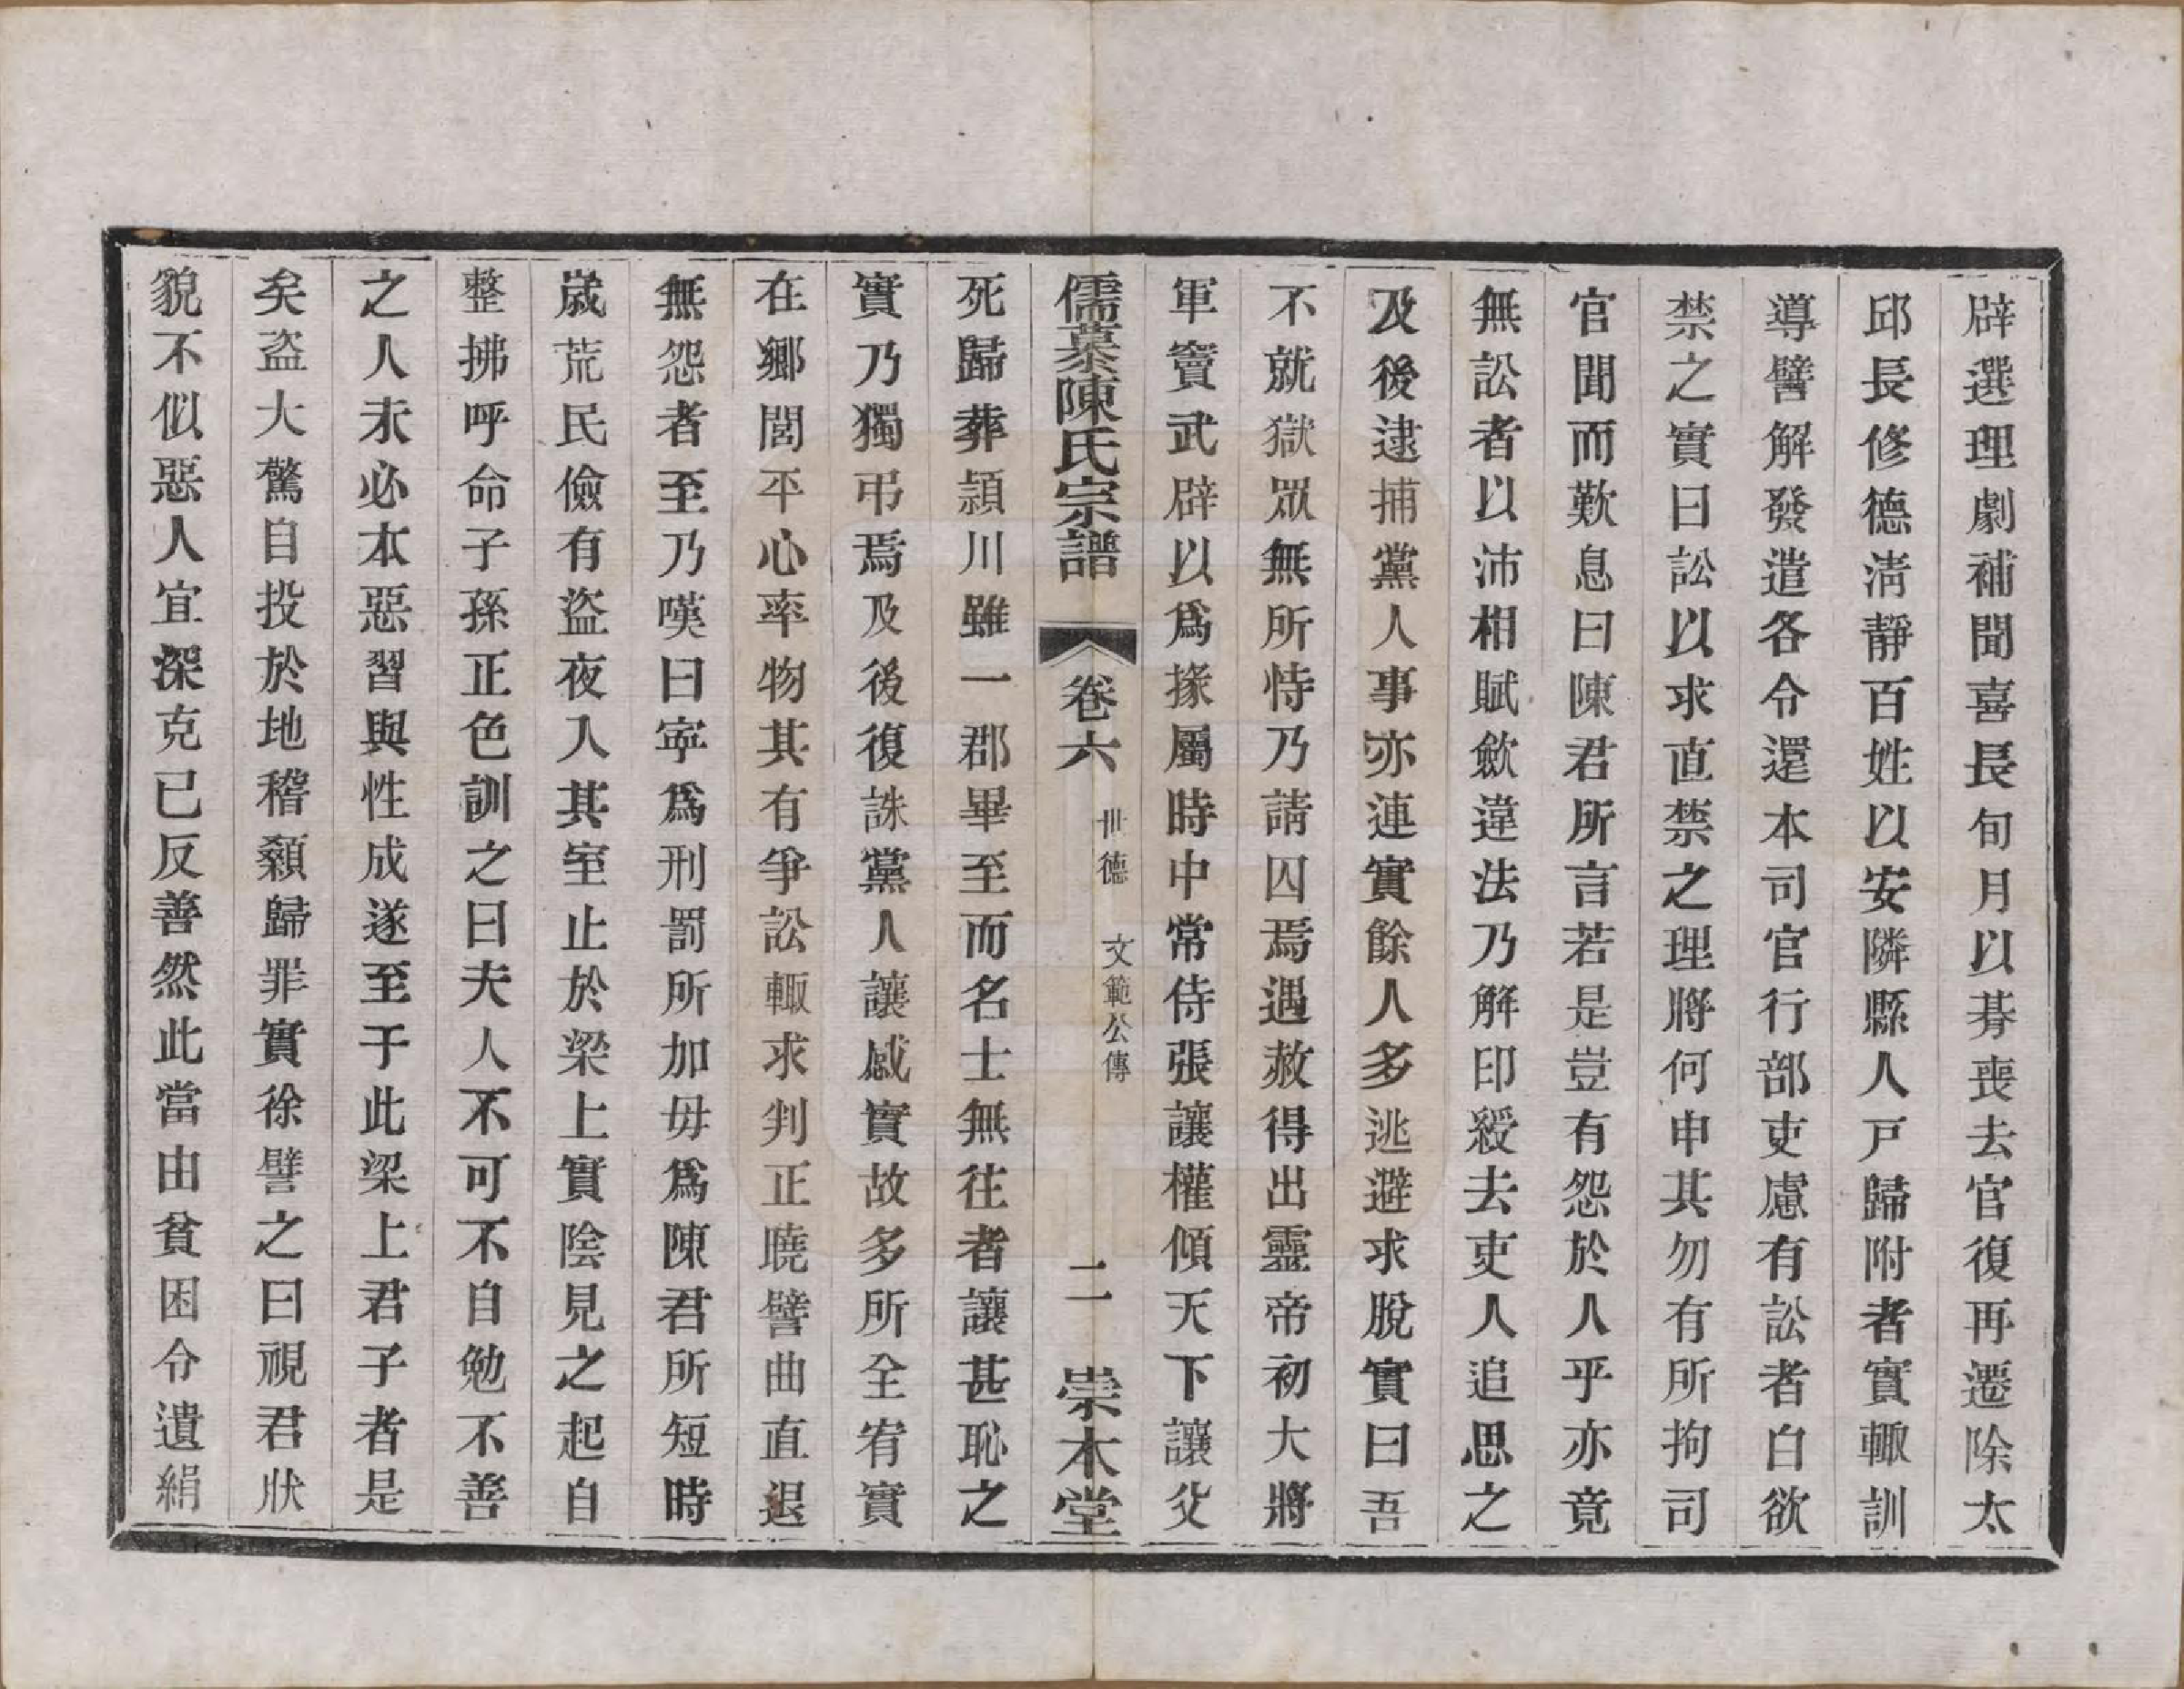 辟選理劇補聞喜長旬月以朞喪去官復再遷除太
邱長修德淸靜百姓以安隣縣人戸歸附者實輙訓
導譬解發遣各令還本司官行部吏慮有訟者白欲
禁之實曰訟以求直禁之理將何申其勿有所拘司
官聞而歎息曰陳君所言若是豈有怨於人乎亦竟
無訟者以沛相賦歛違法乃解印綬去吏人追思之
及後逮捕黨人事亦連實餘人多逃避求脫實曰吾
不就獄眾無所恃乃請囚焉遇赦得出靈帝初大將
軍竇武辟以爲掾屬時中常侍張讓權傾天下讓父
儒慕陳氏宗譜 卷六 世德 文範公傳 二 崇本堂
死歸葬頴川雖一郡畢至而名士無往者讓甚恥之
實乃獨弔焉及後復誅黨人讓感實故多所全宥實
在鄉閭平心率物其有爭訟輙求判正曉譬曲直退
無怨者至乃嘆曰寜爲刑罰所加毋爲陳君所短時
歲荒民儉有盜夜入其室止於梁上實陰見之起自
整拂呼命子孫正色訓之曰夫人不可不自勉不善
之人未必本惡習與性成遂至于此梁上君子者是
矣盜大驚自投於地稽顙歸罪實徐譬之曰視君狀
貌不似惡人宜深克已反善然此當由貧困令遺絹